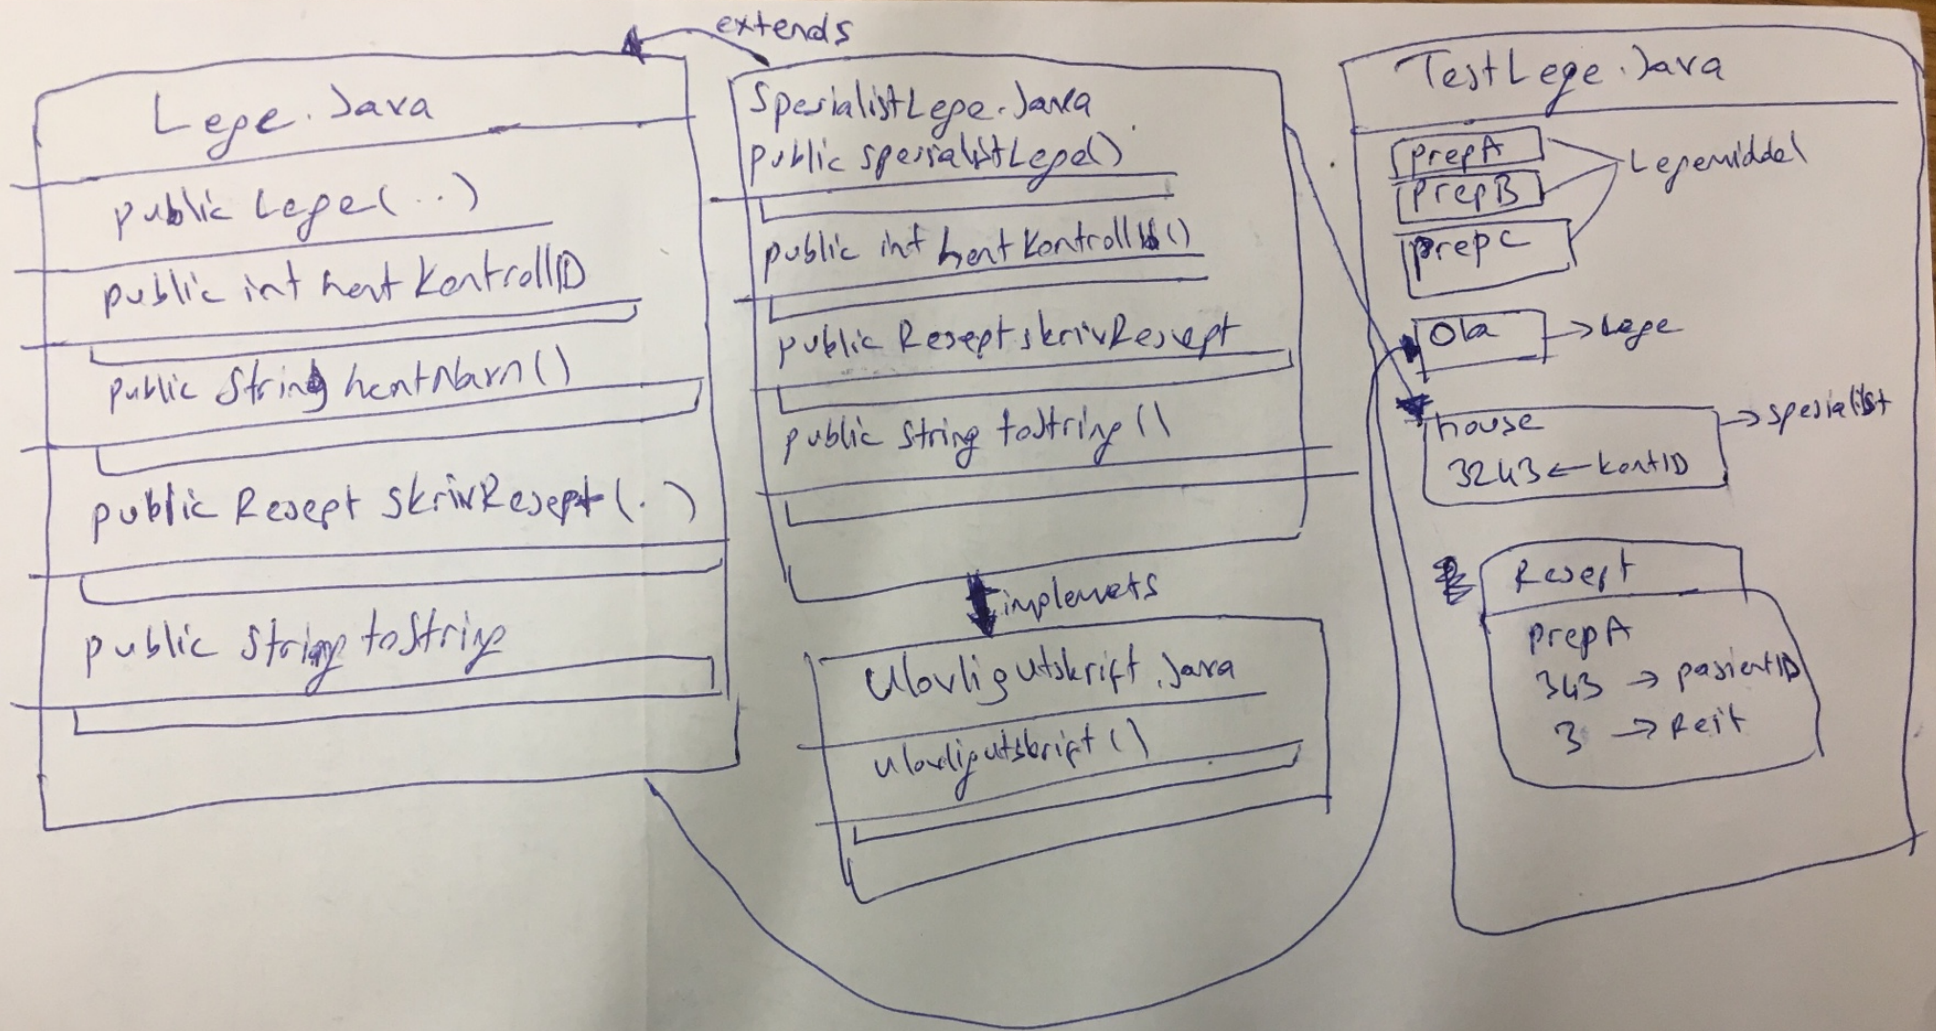 extends
Lege.Java
public Lege(..)
public int hent KontrollID
public String hentNavn()
public Resept skrivResept(.)
public String toString
SpesialistLege.Java
public spesialistLege()
public int hent Kontroll()
public Resept skrivResept
public String toString()
implemets
UlovligUtskrift.Java
Ulovligutskrift()
TestLege.Java
prepA
prepB
prepC
Legemiddel
Ola → Lege
house → spesialist
3243 ← kontID
Resept
prepA
343 → pasientID
3 → Reit